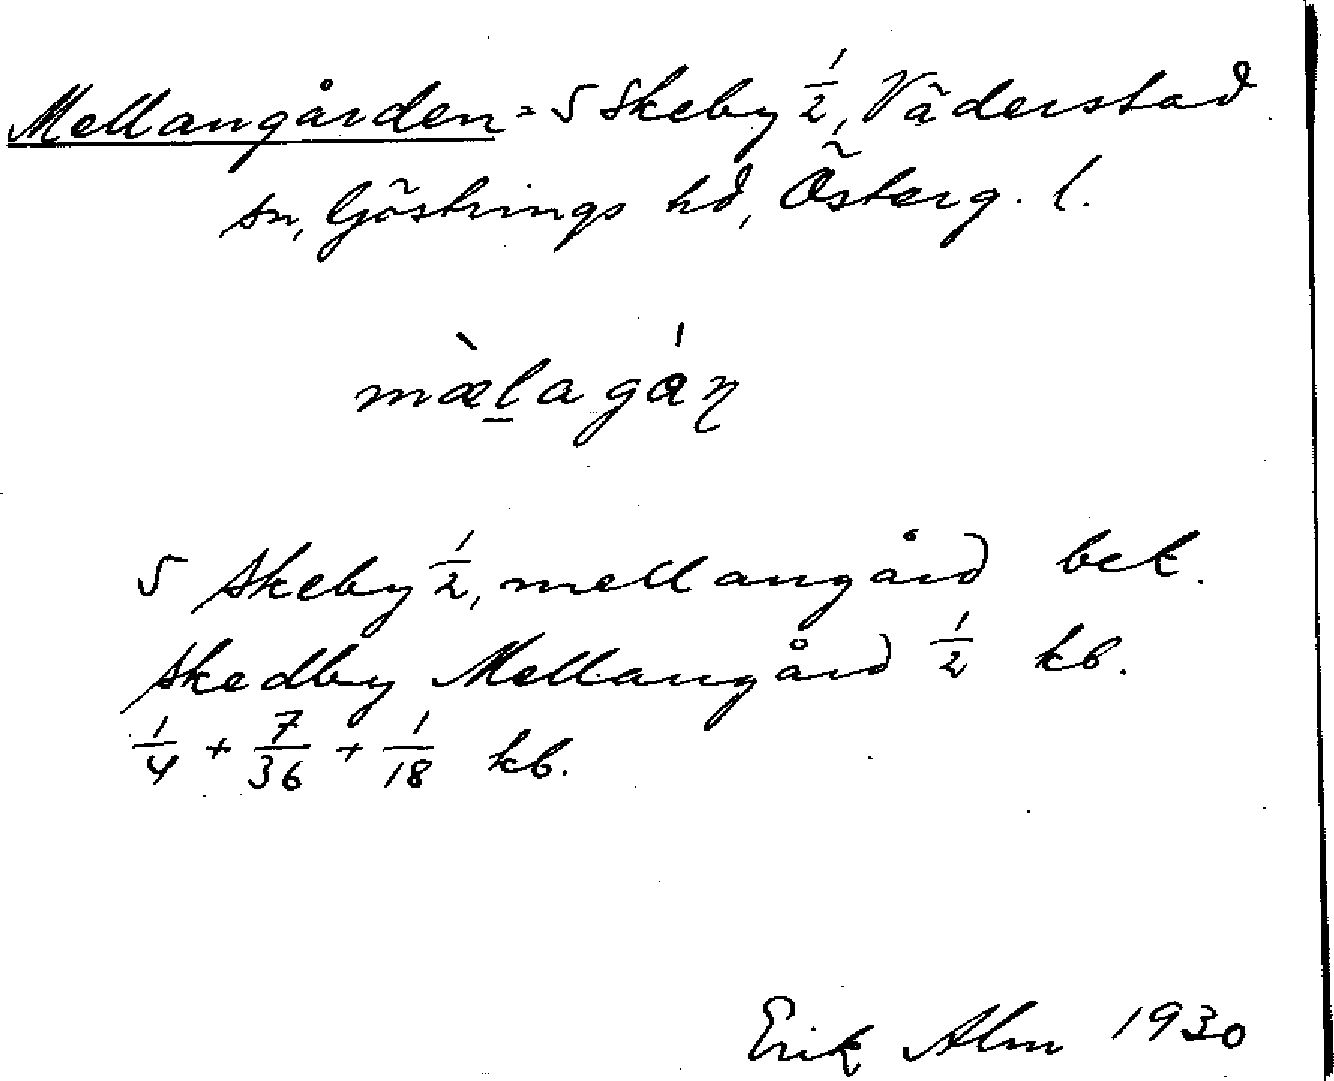 Mellangården = 5 Skeby 1/2, Väderstad
sn, Göstrings hd, Österg. l.
mæ̀lagáṇ
5 Skeby 1/2, mellangård bek.
Skedby Mellangård 1/2 kb.
1/4 + 7/36 + 1/18 kb.
Erik Alm 1930